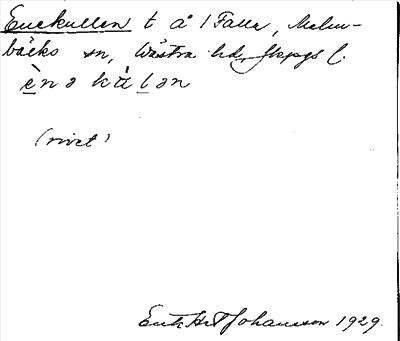 Enekullen t å 1 Falla, Malm-
bäcks sn, Västra hd, Jkpgs l.
ènə kùlən
(rivet)
Erik Hr Johansson 1929.